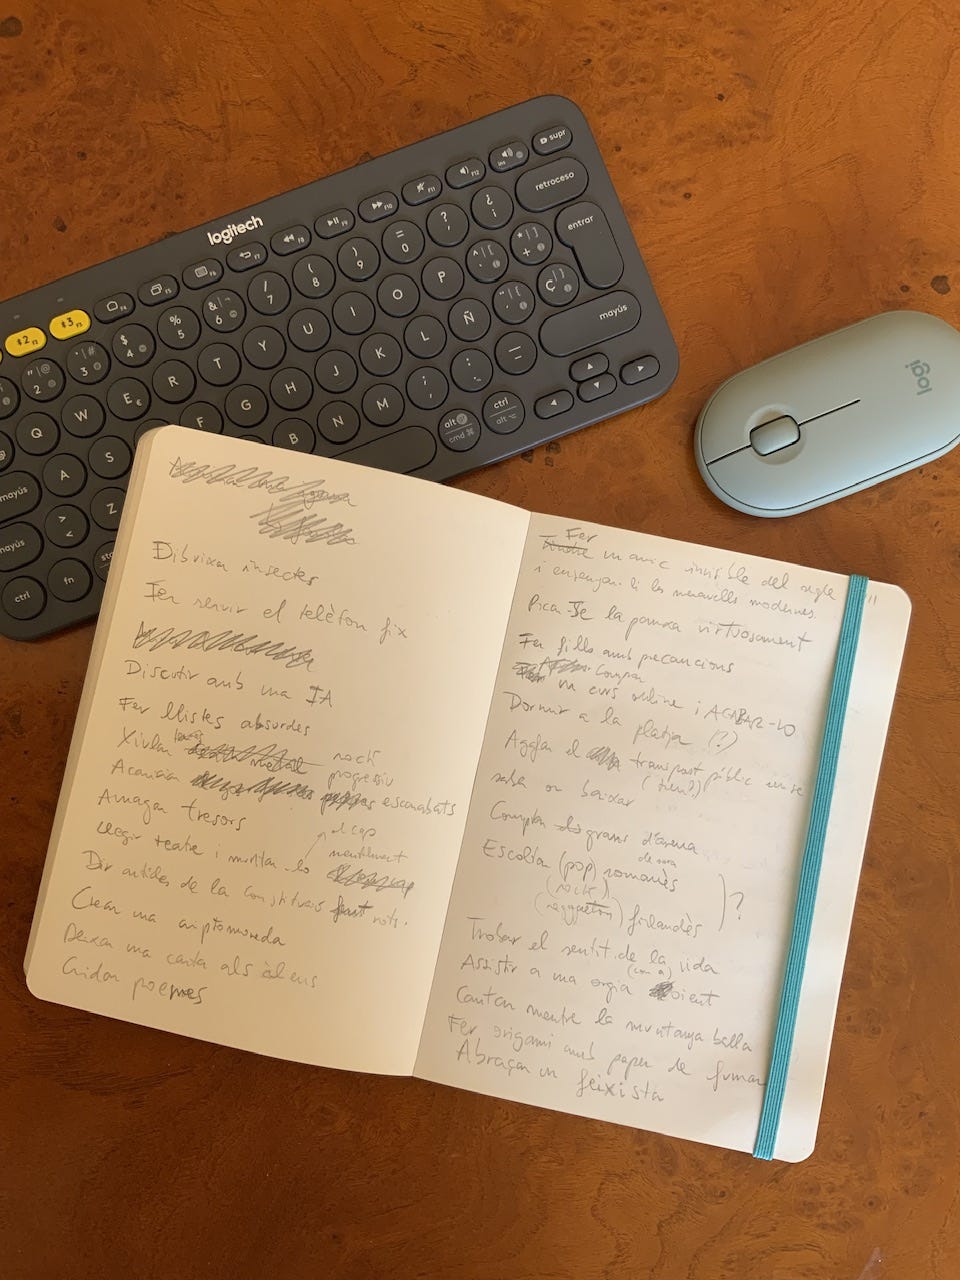 logitech
supr
retroceso
entrar
mayús
alt
cmd
ctrl
alt
logi
Dibuixar insectes
Fer servir el telèfon fix
Discutir amb una IA
Fer llistes absurdes
Xiular rock
progressiu
Acariciar escarabats
Amagar tresors
el cap
mentalment
Llegir teatre i muntar-lo
Dir antides de la
Crear una criptomoneda
Deixar una carta als àliens
Cridar poemes
Fer
un amic invisible del segle
i ensenyar-li les meravelles modernes.
Picar-se la panxa virtuosament
Fer fills amb precaucions
Comprar
un curs online i ACABAR-LO
Dormir a la platja (?)
Agafar el transport públic sense
(tren?)
saber on baixar
Comptar grans d'arena
Escoltar (pop) romanès
(rock)
(reggaeton) finlandès
?
Trobar el sentit de la vida
Assistir a una orgia
(com a) oient
Cantar mentre la muntanya balla
Fer origami amb paper de fumar
Abraçar un feixista